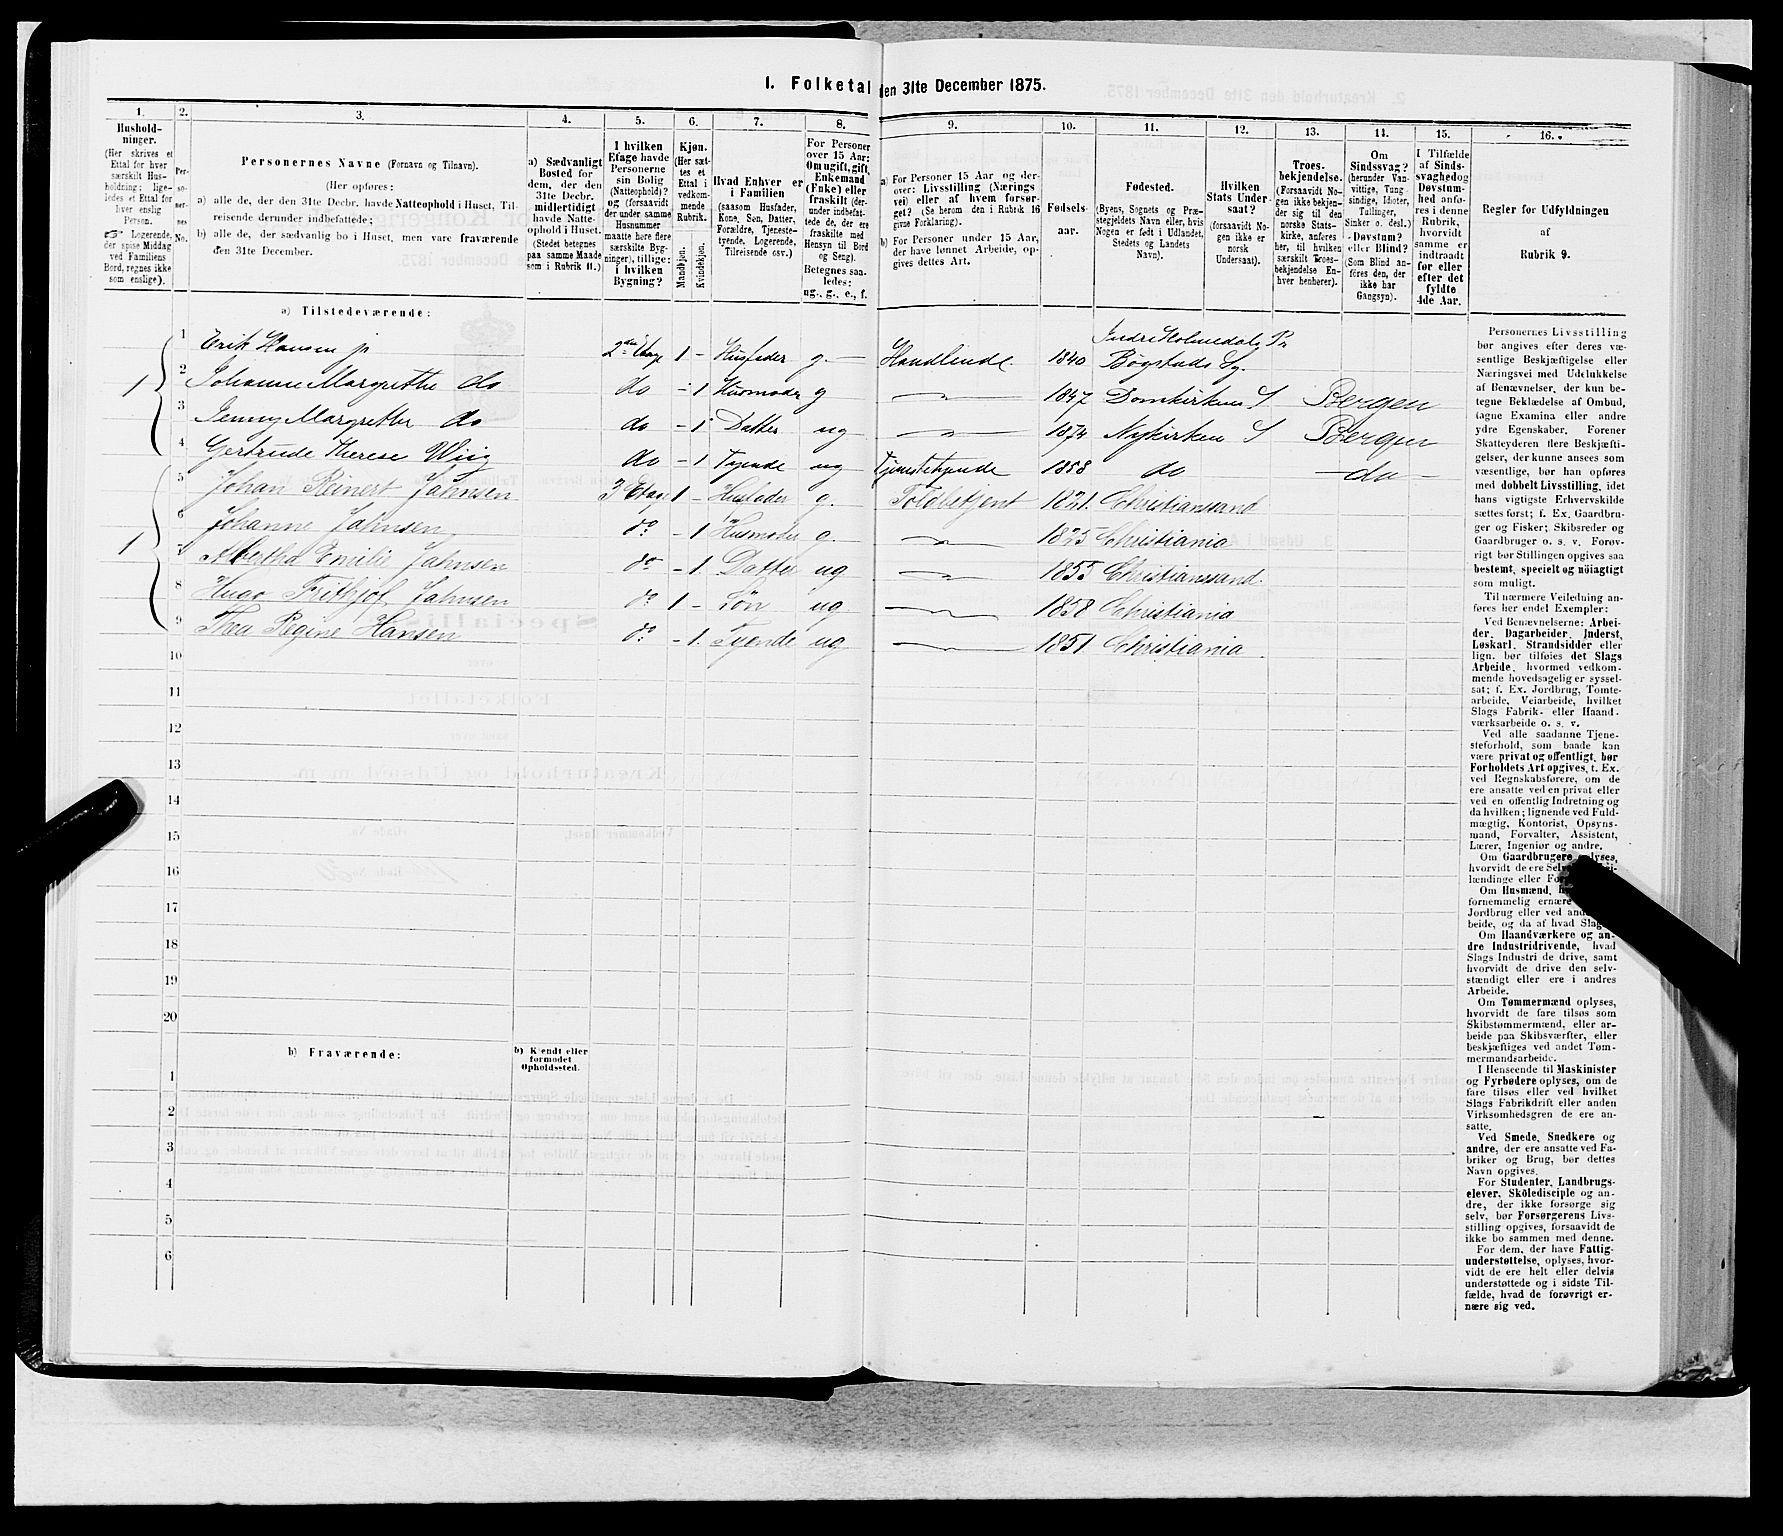 1. Folketal den 31te December 1875.
1.
Hushold-
ninger.
(Her skrives et
Ettal for hver
særskilt Hus-
holdning; lige-
ledes et Ettal for
hver enslig
Person.
☞ Logerende,
der spise Middag
ved Familiens
Bord, regnes ikke
som enslige).
2.
Per-
so-
ner-
nes
No.
3.
Personernes Navne (Fornavn og Tilnavn).
(Her opføres:
a) alle de, der den 31te Decbr. havde Natteophold i Huset, Til-
reisende derunder indbefattede;
b) alle de, der sædvanlig bo i Huset, men vare fraværende
den 31te December.
4.
a) Sædvanligt
Bosted for
dem, der den
31te Decbr.
midlertidigt
havde Natte-
ophold i Huset.
(Stedet betegnes
paa samme Maade
som i Rubrik 11.)
5.
I hvilken
Etage havde
Personerne
sin Bolig
(Natteophold)?
og (forsaavidt
der under samme
Husnummer
maatte høre flere
særskilte Byg-
ninger), tillige:
i hvilken
Bygning?
6.
Kjøn.
(Her sæt-
tes et
Ettal i
vedkom-
mende
Rubrik.
Mandkjøn.
Kvindekjøn.
7.
Hvad Enhver er
i Familien
(saasom Husfader,
Kone, Søn, Datter,
Forældre, Tjeneste-
tyende, Logerende,
Tilreisende osv.)
8.
For Personer
over 15 Aar:
Om ugift, gift,
Enkemand
(Enke) eller
fraskilt (der-
under indbefat-
tede de, der ere
fraskilte med
Hensyn til Bord
og Seng).
Betegnes saa-
ledes:
ug., g., e., f.
9.
a) For Personer 15 Aar og der-
over: Livsstilling (Nærings
vei) eller af hvem forsør-
get? (Se herom den i Rubrik 16
givne Forklaring).
b) For Personer under 15 Aar,
der have lønnet Arbeide, op-
gives dettes Art.
10.
Fødsels-
aar.
11.
Fødested.
(Byens, Sognets og Præ-
stegjeldets Navn eller, hvis
Nogen er født i Udlandet,
Stedets og Landets
Navn).
12.
Hvilken
Stats Under-
saat?
(forsaavidt No-
gen ikke er
norsk
Undersaat).
13.
Troes-
bekjendelse.
(Forsaavidt No-
gen ikke bekjen-
der sig til den
norske Stats-
kirke, anføres
her, til hvilken
særskilt Troes-
bekjendelse En-
hver henhører).
14.
Om
Sindssvag?
(herunder Van-
vittige, Tung-
sindige, Idioter,
Tullinger,
Sinker o. desl.)
Døvstum?
eller Blind?
(Som Blind an-
føres den, der
ikke har
Gangsyn).
15.
I Tilfælde
af Sinds-
svaghed og
Døvstum-
hed anfø-
res i denne
Rubrik,
hvorvidt
samme er
indtraadt
før eller
efter det
fyldte
4de Aar.
16.
Regler for Udfyldningen
af
Rubrik 9.
a) Tilstedeværende:
1 Erik Hansen jr 2den Etage 1 - Husfader g. Handlende. 1840 Indre Holmedals Pr Bøgstads Sg.
1
2 Johanne Margrethe do do - 1 Husmoder g 1847 Domkirkens S Bergen
3 Jenny Margrethe do do - 1 Datter ug 1874 Nykirken S Bergen
4 Gertrude Therese Wiig do - 1 Tyende ug Tjenestetyende 1858 do - do -
5 Johan Reinert Jahnsen 3 Etage 1 - Husfader g. Toldbetjent 1821. Christianssand
6 Johanne Jahnsen do - 1 Husmoder g. 1825 Christiania
1
7 Albertha Emilie Jahnsen do - 1. Datter ug 1855 Christianssand.
8 Hugo Frithjof Jahnsen do 1 - Søn ug 1858 Christiania
9 Thea Regine Hansen do - 1. Tyende ug 1851. Christiania
10
11
12
13
14
15
16
17
18
19
20
b) Fraværende:
b) Kjendt eller
formodet
Opholdssted.
1
2
3
4
5
6
Personernes Livsstilling
bør angives efter deres væ-
sentlige Beskjæftigelse eller
Næringsvei med Udelukkelse
af Benævnelser, der kun be-
tegne Beklædelse af Ombud,
tagne Examina eller andre
ydre Egenskaber. Forener
Skatteyderen flere Beskjæfti-
gelser, der kunne ansees som
væsentlige, bør han opføres
med dobbelt Livsstilling, idet
hans vigtigste Erhvervskilde
sættes først; f. Ex. Gaardbru-
ger og Fisker; Skibsreder og
Gaardbruger o. s. v. Forøv-
rigt bør Stillingen opgives saa
bestemt, specielt og nöiagtigt
som muligt.
Til nærmere Veiledning an-
føres her endel Exempler:
Ved Benævnelserne: Arbei-
der, Dagarbeider, Inderst,
Løskarl, Strandsidder eller
lign. bør tilføies det Slags
Arbeide, hvormed vedkom-
mende hovedsagelig er syssel-
sat; f. Ex. Jordbrug, Tomte-
arbeide, Veiarbeide, hvilket
Slags Fabrik- eller Haand-
værksarbeide o. s. v.
Ved alle saadanne Tjene-
steforhold, som baade kan
være privat og offentligt, bør
Forholdets Art opgives, f. Ex.
ved Regnskabsførere, om de
ere ansatte ved en privat eller
ved en offentlig Indretning og
da hvilken; lignende ved Fuld-
mægtig, Kontorist, Opsyns-
mand, Forvalter, Assistent,
Lærer, Ingeniør og andre.
Om Gaardbrugere oplyses,
hvorvidt de ere Selv
lændinge eller
Om Husmænd,
fornemmelig ernære
Jordbrug eller ved
beide, og da af hvad Slags
Om Haandværkere og an-
dre Industridrivende, hvad
Slags Industri de drive, samt
hvorvidt de drive den selv-
stændigt eller ere i andres
Arbeide.
Om Tømmermænd oplyses,
hvorvidt de fare tilsøs som
Skibstømmermænd, eller ar-
beide paa Skibsværfter, eller
beskjæftiges ved andet Tøm-
mermandsarbeide.
I Henseende til Maskinister
og Fyrbødere oplyses, om de
fare tilsøs eller ved hvilket
Slags Fabrikdrift eller anden
Virksomhedsgren de ere an-
satte.
Ved Smede, Snedkere og
andre, der ere ansatte ved Fa-
briker og Brug, bør dettes
Navn opgives.
For Studenter, Landbrugs-
elever, Skoledisciple og an-
dre, der ikke forsørge sig
selv, bør Forsørgerens Livs-
stilling opgives, forsaavidt de
ikke bo sammen med denne.
For dem, der have Fattig-
understøttelse, oplyses, hvor-
vidt de ere helt eller delvis
understøttede og i sidste Til-
fælde, hvad de forøvrigt er-
nære sig ved.